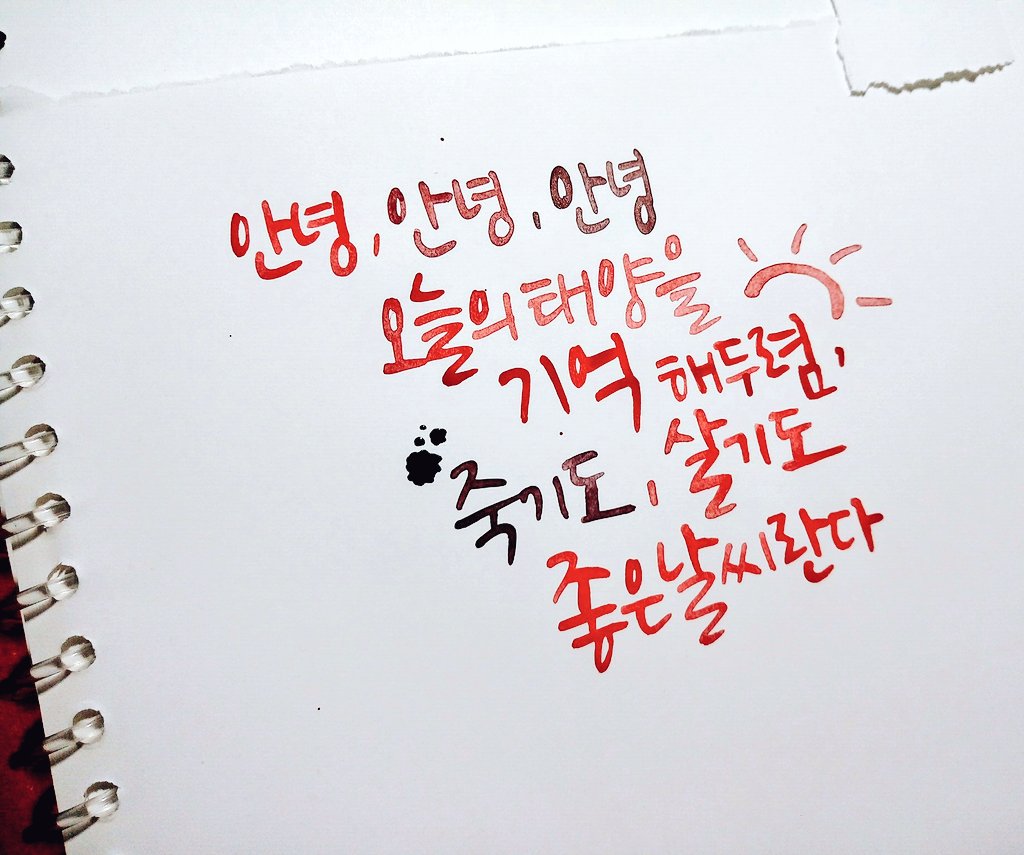 안녕, 안녕, 안녕
오늘의 태양을
기억 해두렴,
죽기도, 살기도
좋은날씨란다